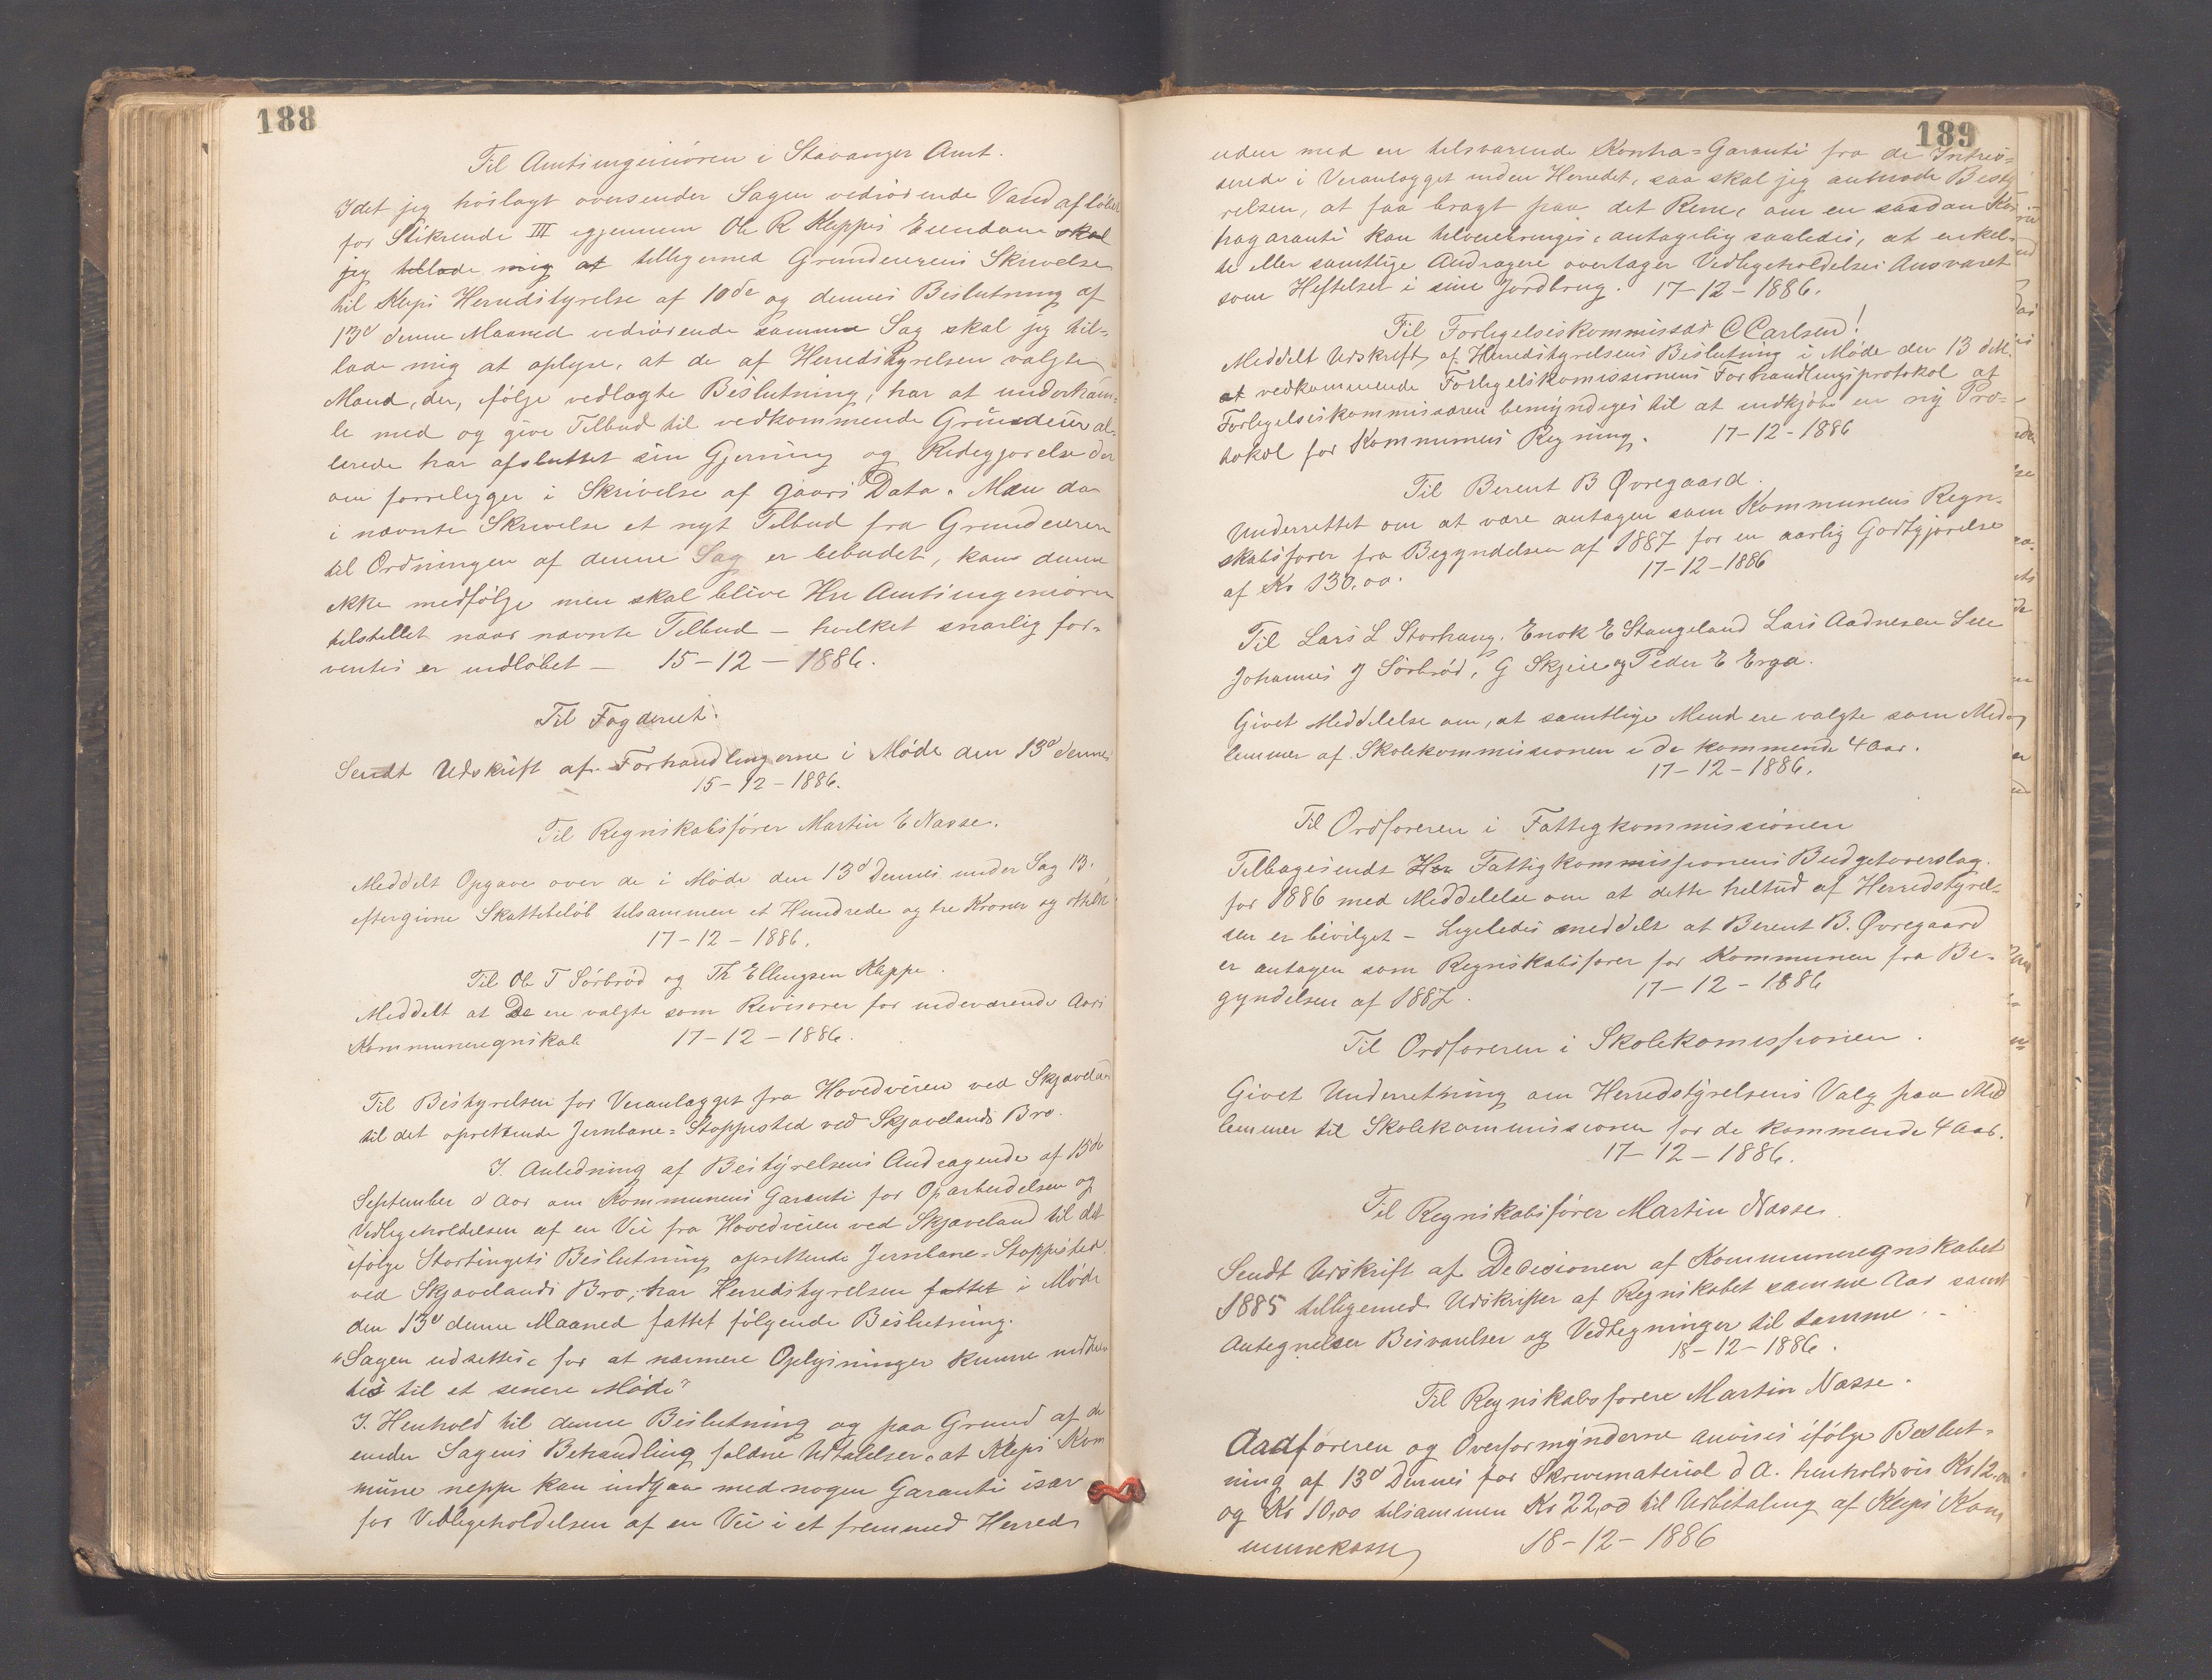 188
Til Amtsingeniören i Stavanger Amt.
Idet jeg hoslagt oversender Sagen vedrörende Vandaflöbet
for Stikrende III igjennem Ole R Kleppes Eiendom skal
jeg tillade mig at tilligemed Grundeierens Skrivelse
til Kleps Herredstyrelse af 10de og dennes Beslutning af
13d denne Maaned vedrörende samme Sag skal jeg til-
lade mig at oplyse, at de af Herredstyrelsen valgte
Mænd, der, ifölge vedlagte Beslutning, har at underhand-
le med og give Tilbud til vedkommende Grundeier al-
lerede har afsluttet sin Gjerning og Redegjörelse der
om forreligger i Skrivelse af gaars Dato. Men da
i nævnte Skrivelse et nyt Tilbud fra Grundeieren
til Ordningen af denne Sag er bebudet, kan denne
ikke medfölge men skal blive Hr Amtsingeniören
tilstillet naar nævnte Tilbud – hvilket snarlig for-
ventes er indlöbet – 15-12-1886.
Til Fogderiet.
Sendt Udskrift af Forhandlingerne i Möde den 13d dennes
15-12-1886.
Til Regnskabsförer Martin E Næsse.
Meddelt Opgave over de i Möde den 13d Dennes under Sag 13.
eftergivne Skattebelöb tilsammen et Hundrede og tre Kroner og
17-12-1886.
Til Ole T Sörbröd og Th Ellingsen Kleppe.
Meddelt at De ere valgte som Revisorer for indeværende Aars
Kommuneregnskab 17-12-1886.
Til Bestyrelsen for Veianlægget fra Hovedveien ved Skjæveland
til det oprettende Jernbane-Stoppested ved Skjævelands Bro.
I. Anledning af Bestyrelsens Andragende af 15de
September d Aar om Kommunens Garanti for Oparbeidelsen og
Vedligeholdelsen af en Vei fra Hovedveien ved Skjæveland til det
ifölge Stortingets Beslutning oprettende Jernbane-Stoppested
ved Skjævelands Bro, har Herredstyrelsen fattet i Möde
den 13d denne Maaned fattet fölgende Beslutning.
"Sagen udsættes for at nærmere Oplysninger kunne indhen-
tes til et senere Möde"
I. Henhold til denne Beslutning og paa Grund af de
under Sagens Behandling faldne Udtalelser, at Kleps Kom
mune neppe kan indgaa med nogen Garanti især
for Vedligeholdelsen af en Vei i et fremmed Herred
189
uden med en tilsvarende Kontra-Garanti fra de Intres-
serede i Veianlægget inden Herredet, saa skal jeg anmode Besty
relsen, at faa bragt paa det Rene, om en saadan Kon
tragaranti kan tilveiebringes, antagelig saaledes, at enkel-
te eller samtlige Andragere overtager Vedligeholdelses Ansvaret
som Heftelser i sine Jordbrug. 17-12-1886.
Til Forligelseskommissær C Carlsen!
Meddelt Udskrift af Herredstyrelsens Beslutning i Möde den 13 d.M.
at vedkommende Forligelskomissionens Forhandlingsprotokol at
Forligelseskommissæren bemyndiges til at indkjöbe en ny Pro-
tokol for Kommunens Regning. 17-12-1886
Til Berent B Øvregaard.
Underrettet om at være antagen som Kommunens Regn-
skabsförer fra Begyndelsen af 1887 for en aarlig Godtgjörelse
af Kr 130,00. 17-12-1886
Til Lars L Storhaug. Enok E Stangeland Lars Aadnesen Lee
Johannes J Sörbröd, G Skjeie og Peder E Erga.
Givet Meddelelse om, at samtlige Mend ere valgte som Med-
lemmer af Skolekommissionen i de kommende 4 Aar.
17-12-1886.
Til Ordföreren i Fattigkommissionen
Tilbagesendt Her Fattigkommissionens Budgetoverslag.
for 1886 med Meddelelse om at dette heltud af Herredstyrel-
sen er bivilget – Ligeledes meddelt at Berent B. Øvregaard
er antagen som Regnskabsförer for Kommunen fra Be-
gyndelsen af 1887. 17-12-1886
Til Ordföreren i Skolekomissionen.
Givet Underretning om Herredstyrelsens Valg paa Med
lemmer til Skolekommissionen for de kommende 4 Aar.
17-12-1886.
Til Regnskabsförer Martin Næsse.
Sendt Udskrift af Decisionen af Kommuneregnskabet
1885 tilligemed Udskrifter af Regnskabet samme Aar samt
Antegnelser Besvarelser og Vedtegninger til samme.
18-12-1886.
Til Regnskabsförere Martin Næsse.
Ordföreren og Overformynderne anvises ifölge Beslut-
ning af 13d Dennes for Skrivematerial d A. henholdsvis Kr 12,00
og Kr 10,00 tilsammen Kr 22,00 til Udbetaling af Kleps Kom
munekasse 18-12-1886